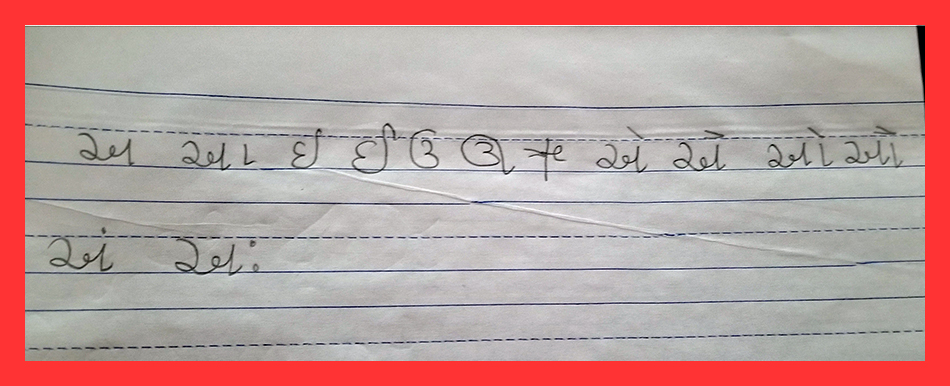 અ આ ઇ ઈ ઉ ઊ ઋ એ ઐ ઓ ઔ
અં અઃ